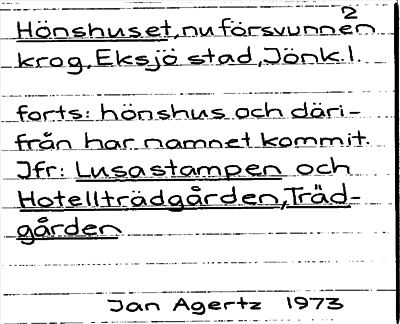 2
Hönshuset, nu försvunnen
krog, Eksjö stad, Jönk.l.
forts: hönshus och däri-
från har namnet kommit.
Jfr: Lusastampen och
Hotellträdgården, Träd-
gården
Jan Agertz 1973